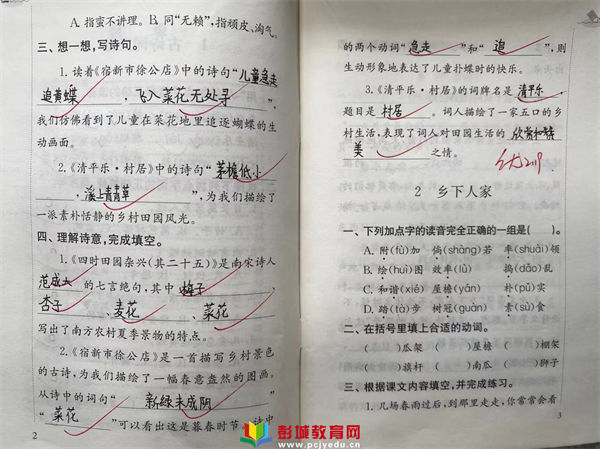 A. 指蛮不讲理。B. 同“无赖”,指顽皮、淘气。
三、想一想,写诗句。
1. 读着《宿新市徐公店》中的诗句“儿童急走
追黄蝶,飞入菜花无处寻”,
我们仿佛看到了儿童在菜花地里追逐蝴蝶的生
动画面。
2.《清平乐·村居》中的诗句“茅檐低小
,溪上青青草”,为我们描绘了
一派素朴恬静的乡村田园风光。
四、理解诗意,完成填空。
1.《四时田园杂兴(其二十五)》是南宋诗人
范成大的七言绝句,其中梅子、
杏子、麦花、菜花
写出了南方农村夏季景物的特点。
2.《宿新市徐公店》是一首描写乡村景色
的古诗,为我们描绘了一幅春意盎然的图画。
从诗中的词句“新绿未成阴”
“菜花”可以看出这是暮春时节。诗中
2
的两个动词“急走”和“追”,则
生动形象地表达了儿童扑蝶时的快乐。
3.《清平乐·村居》的词牌名是清平乐,
题目是村居。词人描绘了一家五口的乡
村生活,表现了词人对田园生活的欣赏和赞
美之情。
2 乡下人家
一、下列加点字的读音完全正确的一组是( )。
A. 附(fù)加 倘(shàng)若 率(shuài)领
B. 绘(huì)图 效率(lù) 捣(dǎo)乱
C. 和谐(xié) 屋檐(yán) 朴(pǔ)实
D. 踏(tà)步 树冠(guàn) 素(sù)食
二、在括号里填上合适的动词。
( )瓜架 ( )屋檐 ( )棚架
( )旗杆 ( )南瓜 ( )狮子
三、根据课文内容填空,并完成练习。
1. 几场春雨过后,到那里走走,你常常会看
3
彭城教育网
www.pcjyedu.cn